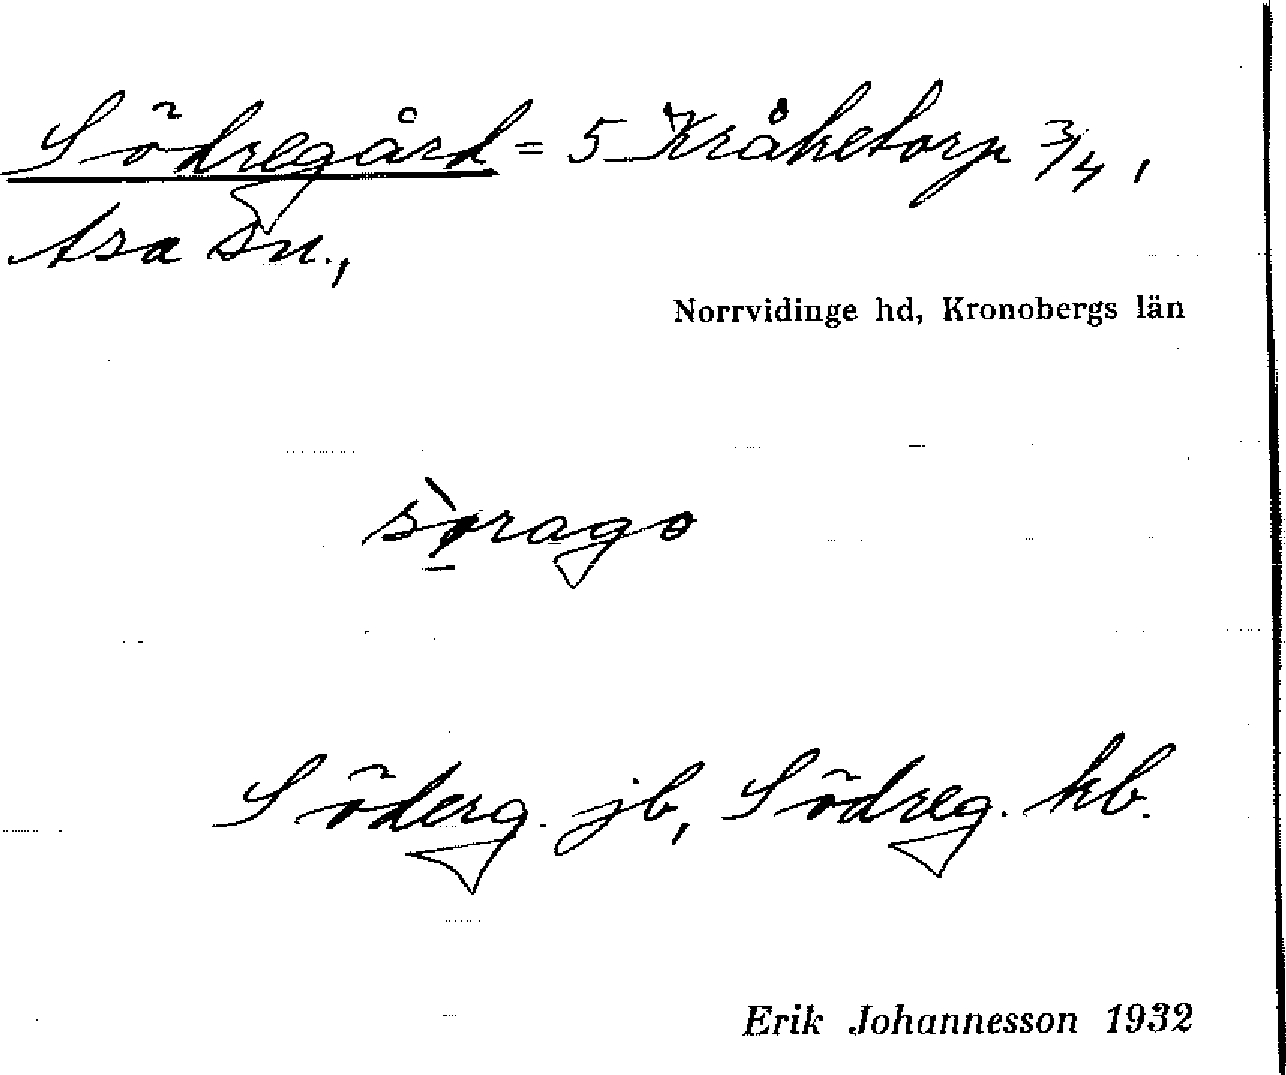 Södregård = 5 Kråketorp 3/4,
Asa sn.,
Norrvidinge hd, Kronobergs län
sørago
Söderg. jb, Södreg. kb.
Erik Johannesson 1932